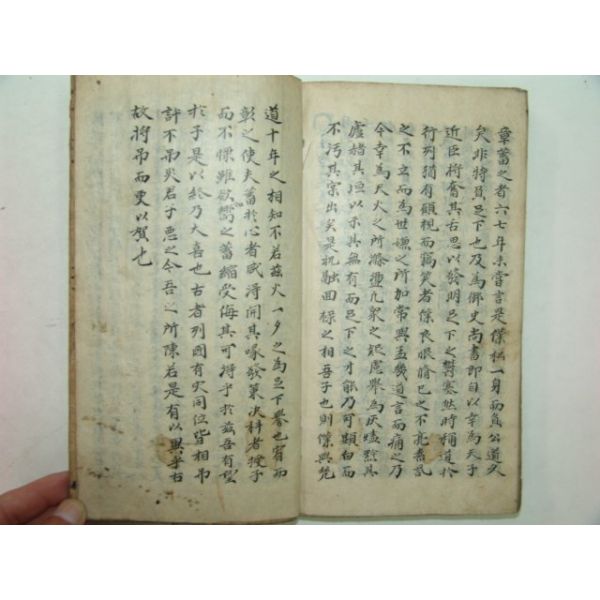 章蓄之者六七年未嘗言是僕私一身而負公道久
矣非特負足下也及為御史尚書郎自以幸為天子
近臣得奮其舌思以發明足下之鬱塞然時稱道於
行列猶有顧視而竊笑者僕良恨脩己之不亮素譽
之不立而為世嫌之所加常與孟幾道言而痛之乃
今幸為天火之所滌盪凡衆之疑慮舉為灰埃黔其
廬赭其垣以示其無有而足下之才能乃可顯白而
不污其實出矣是祝融回祿之相吾子也則僕與幾
道十年之相知不若茲火一夕之為足下譽也宥而
彰之使夫蓄於心者咸得開其喙發策決科者授子
而不慄雖欲嚮之蓄縮受侮其可得乎於茲吾有望
於子是以終乃大喜也古者列國有灾同位皆相吊
許不吊灾君子惡之今吾之所陳若是有以異乎古
故將吊而更以賀也